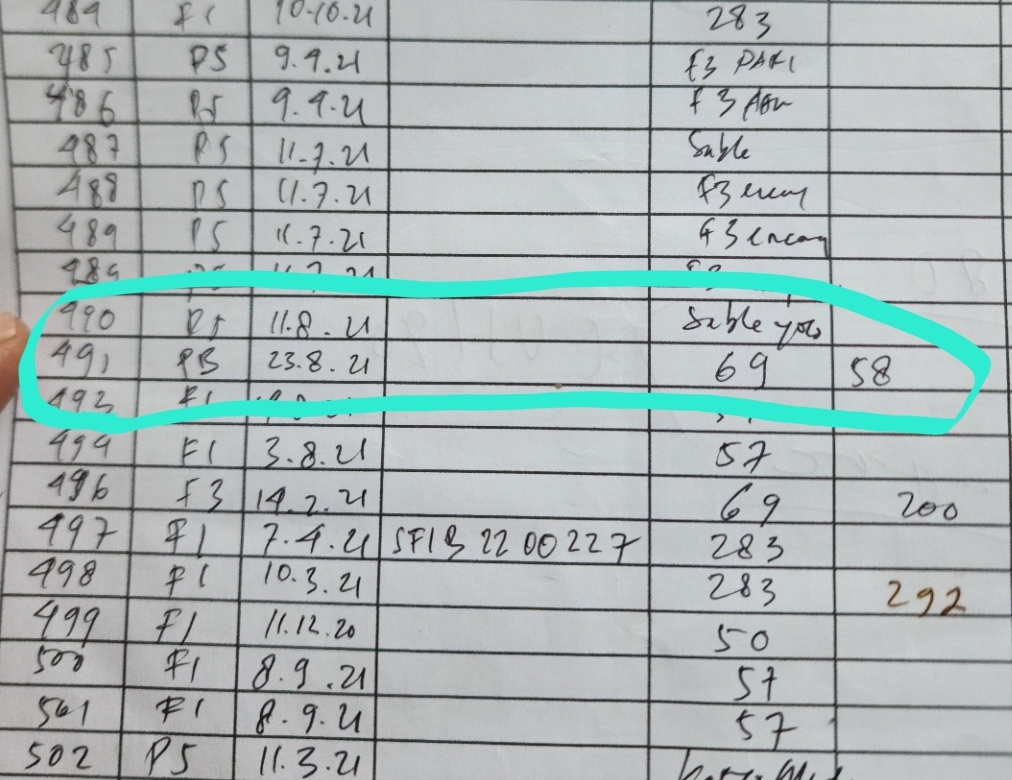 484 F1 10.10.21 283
485 P5 9.9.21 F3
486 P5 9.9.21 F3
487 P5 11.7.21 Sable
488 P5 11.7.21 F3
489 P5 11.7.21 F3
489
990 P5 11.8.21 Sable
491 PB 23.8.21 69 58
492 F1
494 F1 3.8.21 57
496 F3 14.2.21 69 200
497 F1 7.4.21 SF1B 2200227 283
498 F1 10.3.21 283 292
499 F1 11.12.20 50
500 F1 8.9.21 57
501 F1 8.9.21 57
502 P5 11.3.21